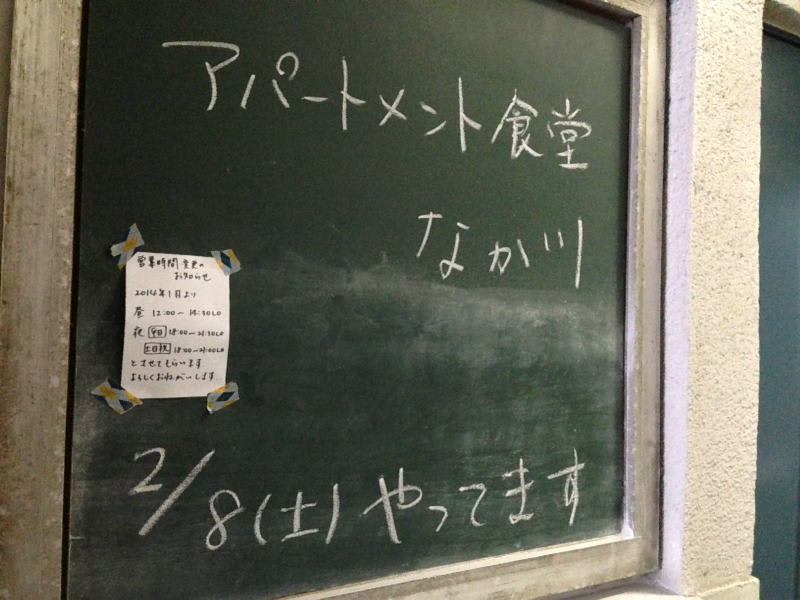 アパートメント食堂
なか川
営業時間変更の
お知らせ
2014年1月より
昼 12:00〜14:30LO
夜 平日 18:00〜21:30LO
土日祝 18:00〜21:00LO
とさせてもらいます
よろしくおねがいします
2/8(土)やってます